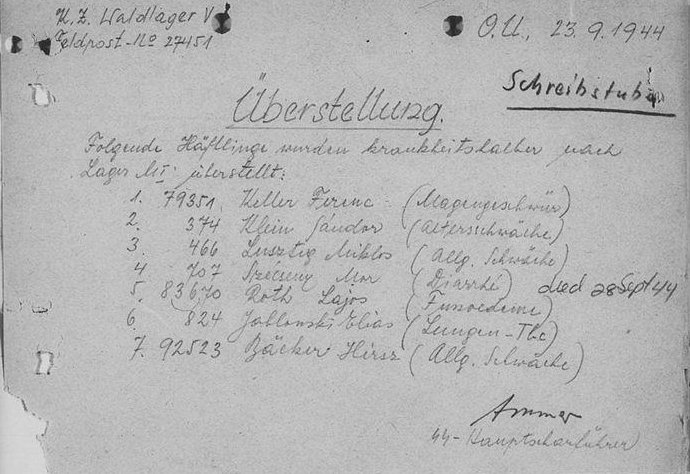 K.Z. Waldlager V
Feldpost-No 27451
O.U., 23.9.1944
Schreibstube
Überstellung.
Folgende Häftlinge wurden krankheitshalber nach
Lager M I überstellt:
1. 79351 Keller Ferenc (Magengeschwür)
2. 374 Klein Sándor (Altersschwäche)
3. 466 Lusztig Miklos (Allg. Schwäche)
4 707 Szecseny Mor (Diarrhé) died 28 Sept 44
5. 83670 Roth Lajos (Fussoedeme)
6. 824 Jablonski Elias (Lungen-Tbc)
7. 92523 Bäcker Hirsz (Allg. Schwäche)
SS-Hauptscharführer